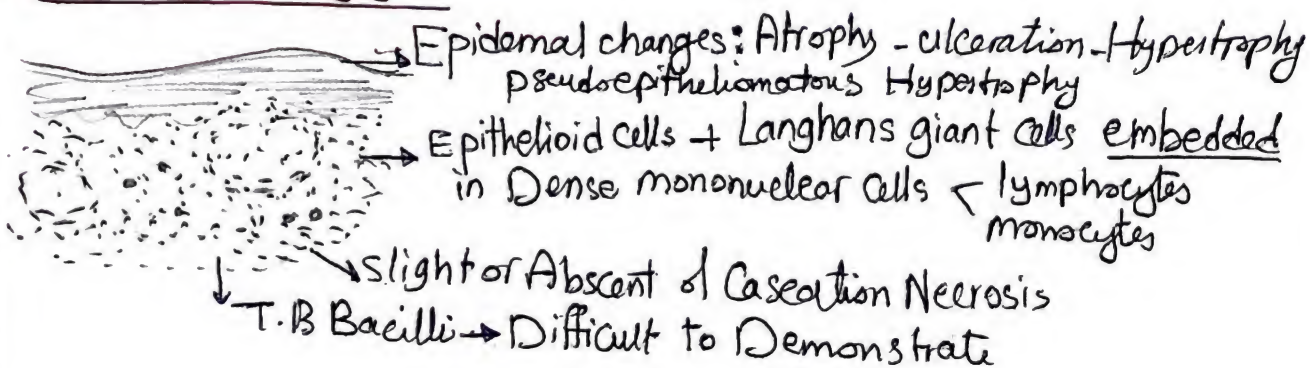 Epidemal changes: Atrophy - ulceration - Hypertrophy
pseudoepitheliomatous Hypertrophy
Epithelioid cells + Langhans giant cells embedded
in Dense mononuclear cells < lymphocytes
monocytes
slight or Abscent of Caseation Necrosis
T.B Bacilli → Difficult to Demonstrate